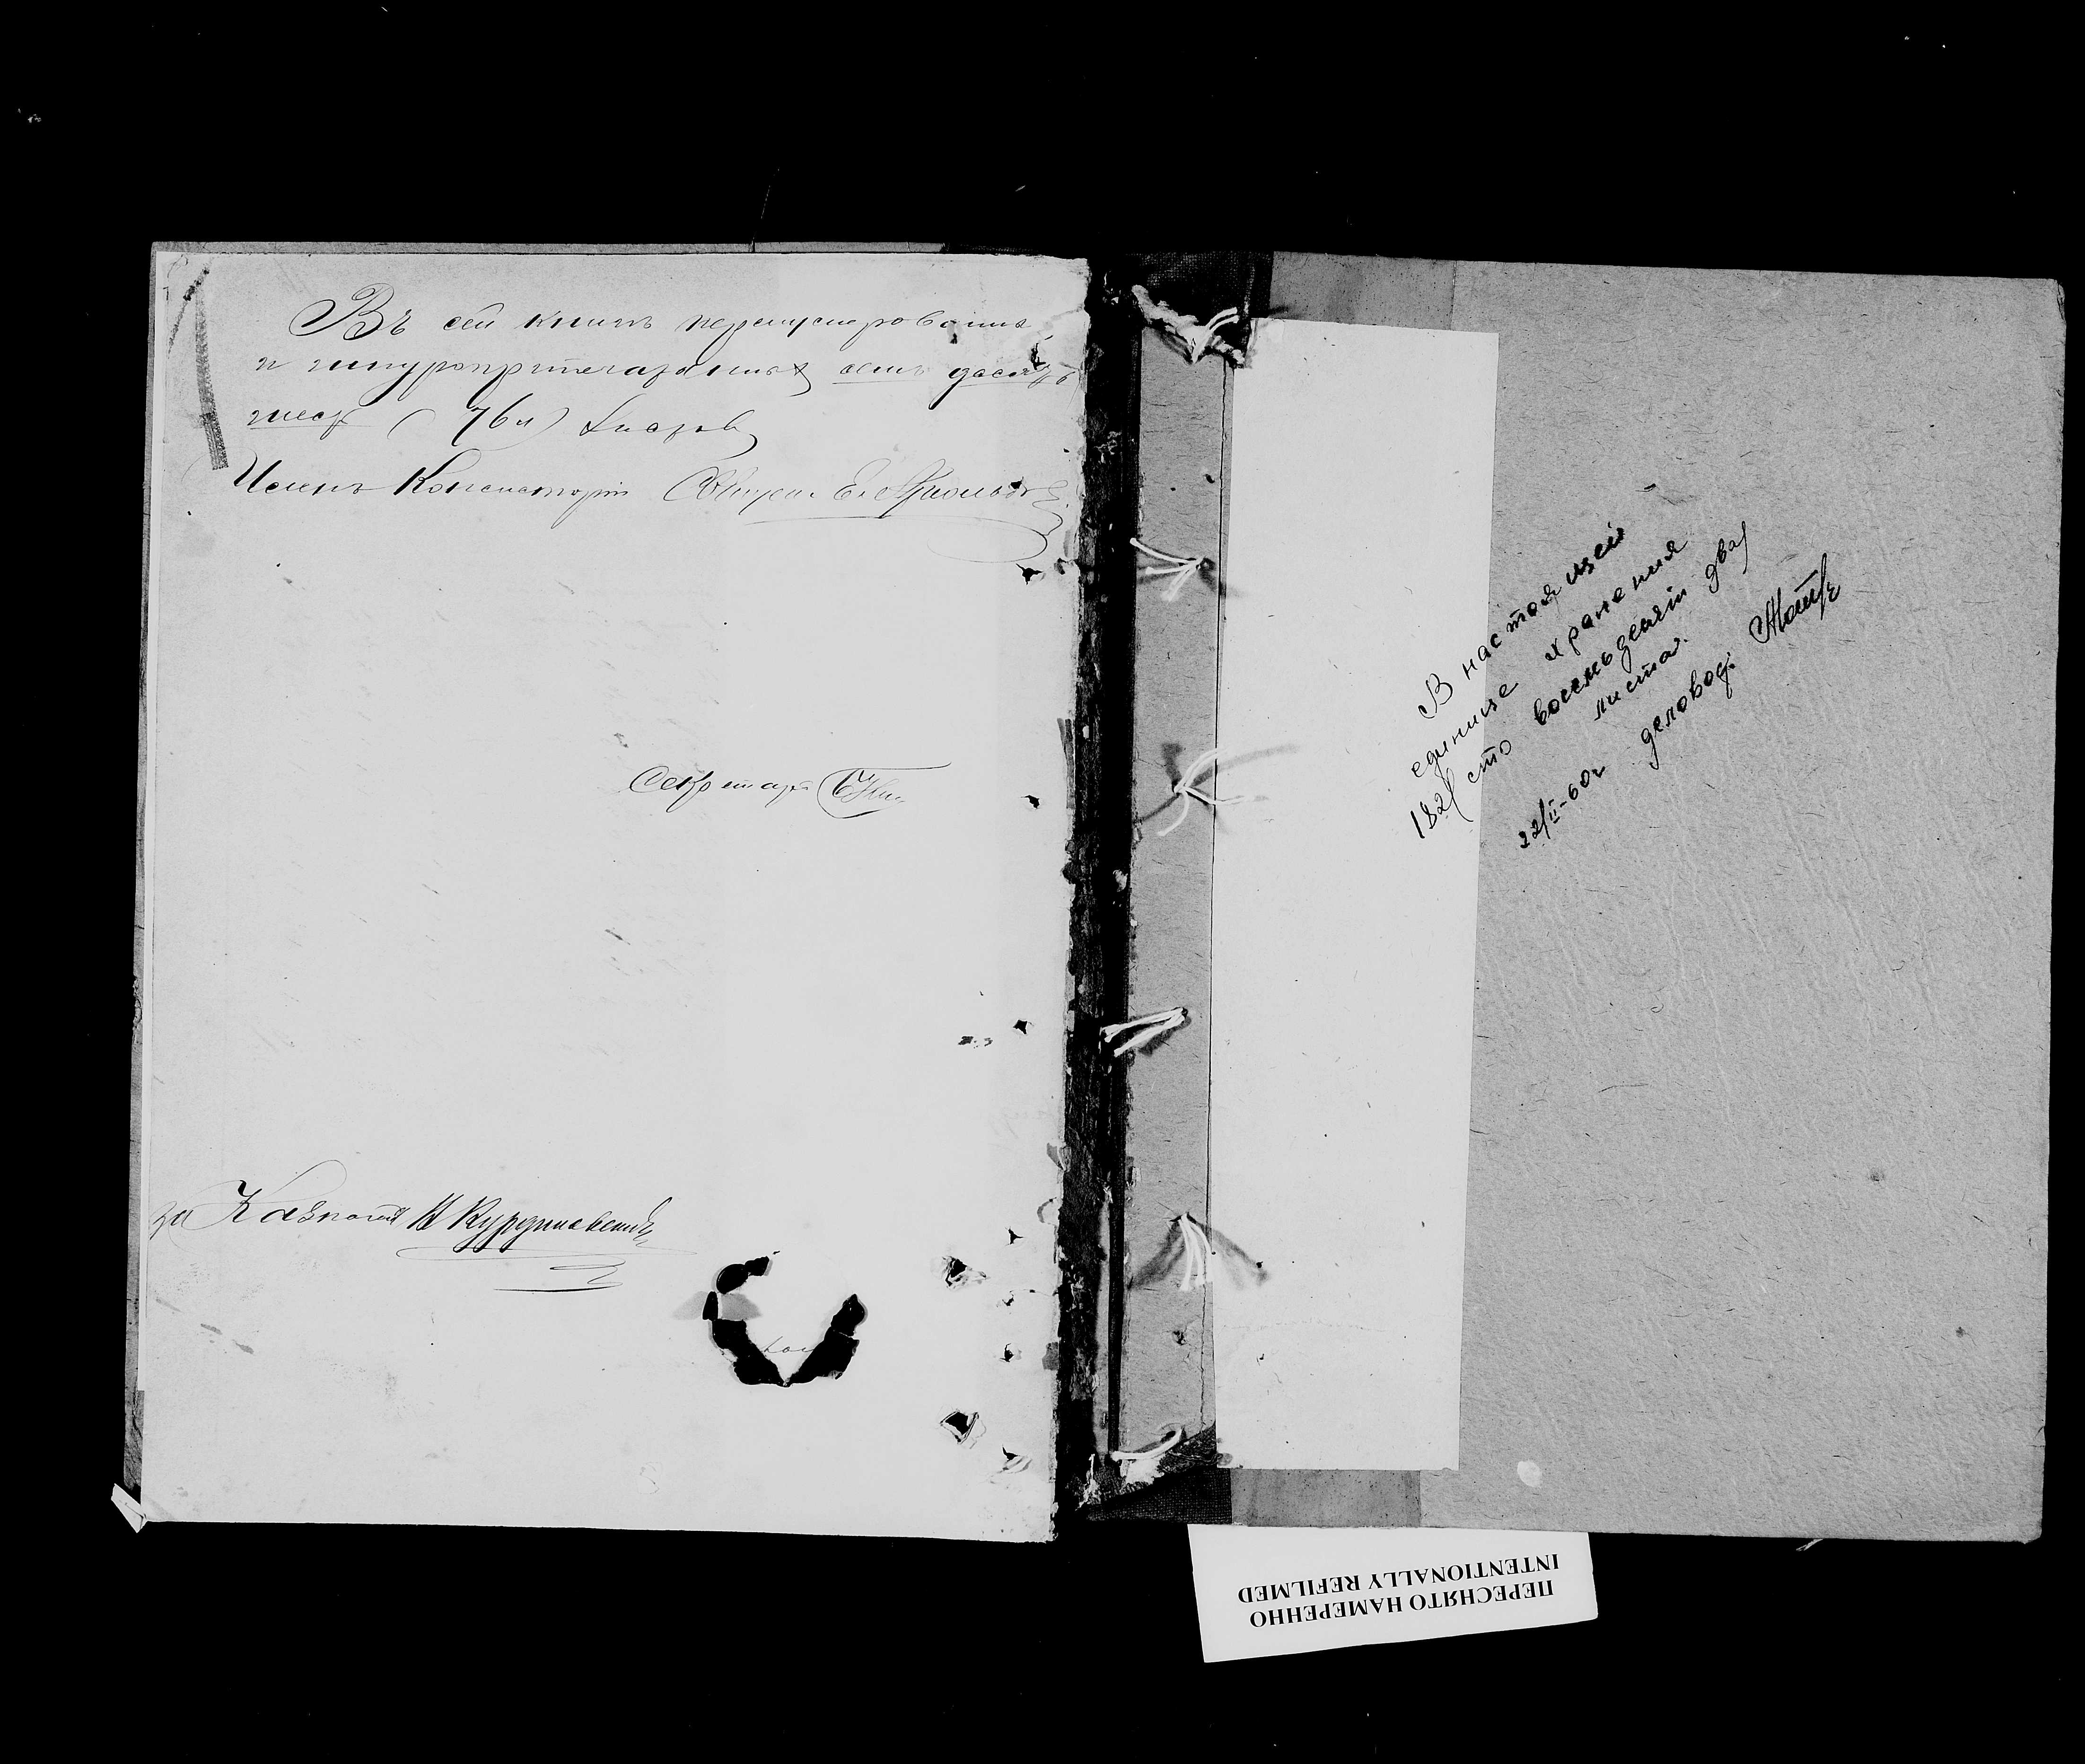 Въ сей книгѣ перенумерованныхъ
и шнуроприпечатанныхъ семь десятъ
шесть (76 л) листовъ
Членъ Консисторіи
Секретарь
за Казначея Н Курдиновскій
В настоящей
единице хранения
182/ сто восемьдесят два/
листа.
22/II-60г деловод.
ПЕРЕСНЯТО НАМЕРЕННО
INTENTIONALLY REFILMED